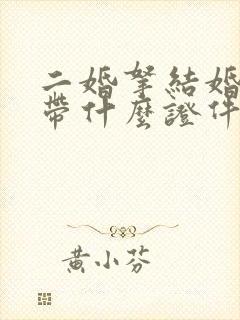 二婚拏結婚
帶什麼證件
黃小芬